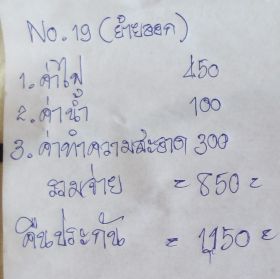 No. 19 (ย้ายออก)
1. ค่าไฟ 450
2. ค่าน้ำ 100
3. ค่าทำความสะอาด 300
รวมจ่าย = 850 =
คืนประกัน = 1,150 =